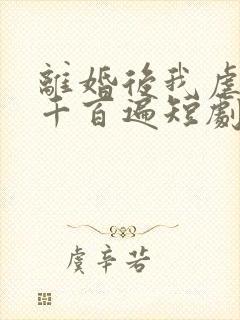 離婚後我虐
千百遍短劇
虞辛若